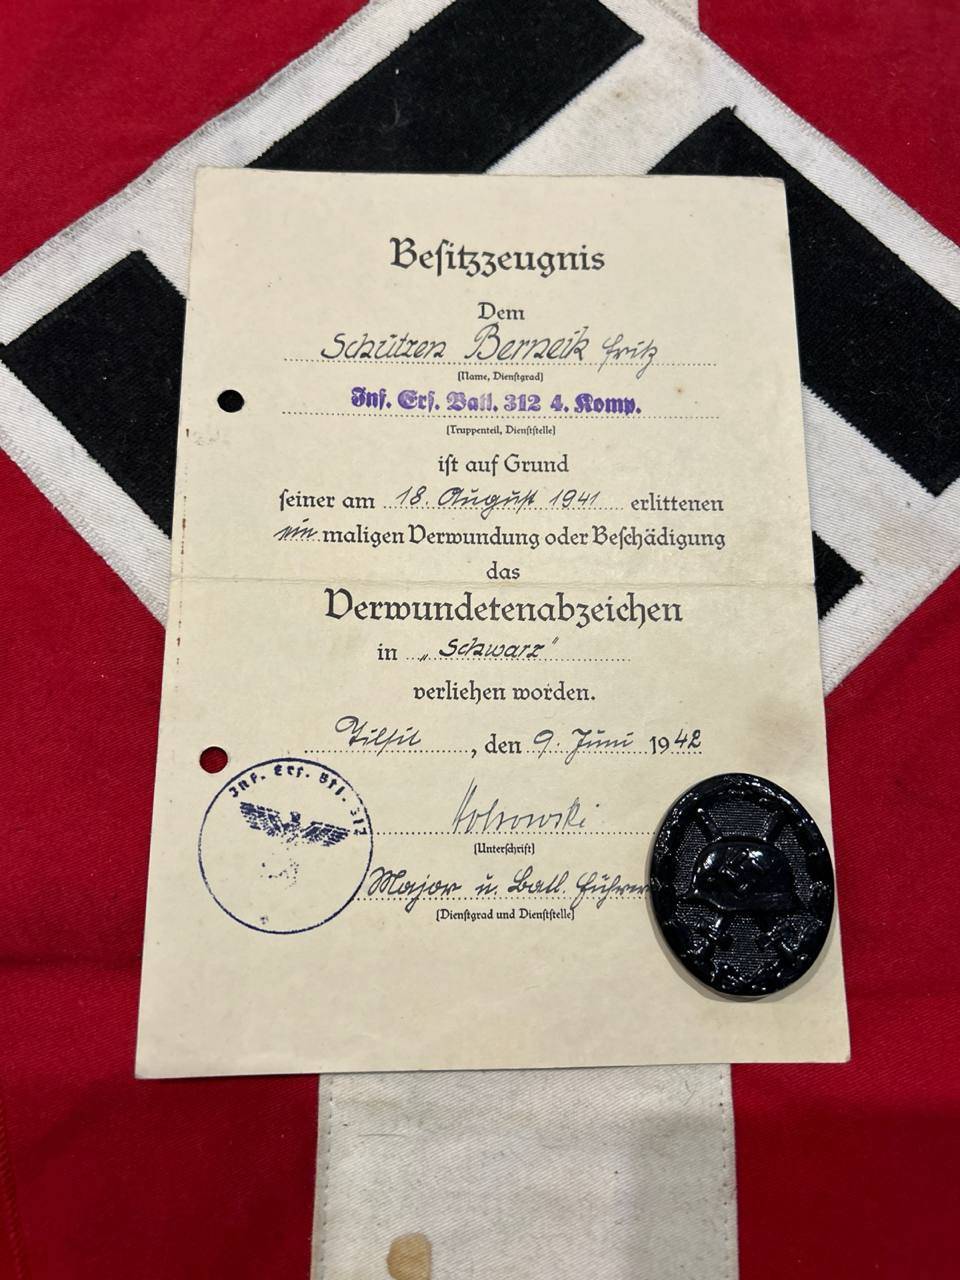 Besitzzeugnis
Dem
Schützen Berneik Fritz
(Name, Dienstgrad)
Inf. Ers. Batl. 312 4. Komp.
(Truppenteil, Dienststelle)
ist auf Grund
seiner am 18. August 1941 erlittenen
ein maligen Verwundung oder Beschädigung
das
Verwundetenabzeichen
in „Schwarz"
verliehen worden.
Tilsit, den 9. Juni 1942
Inf. Ers. Btl. 312
(Unterschrift)
Major u. Batl. Führer
(Dienstgrad und Dienststelle)